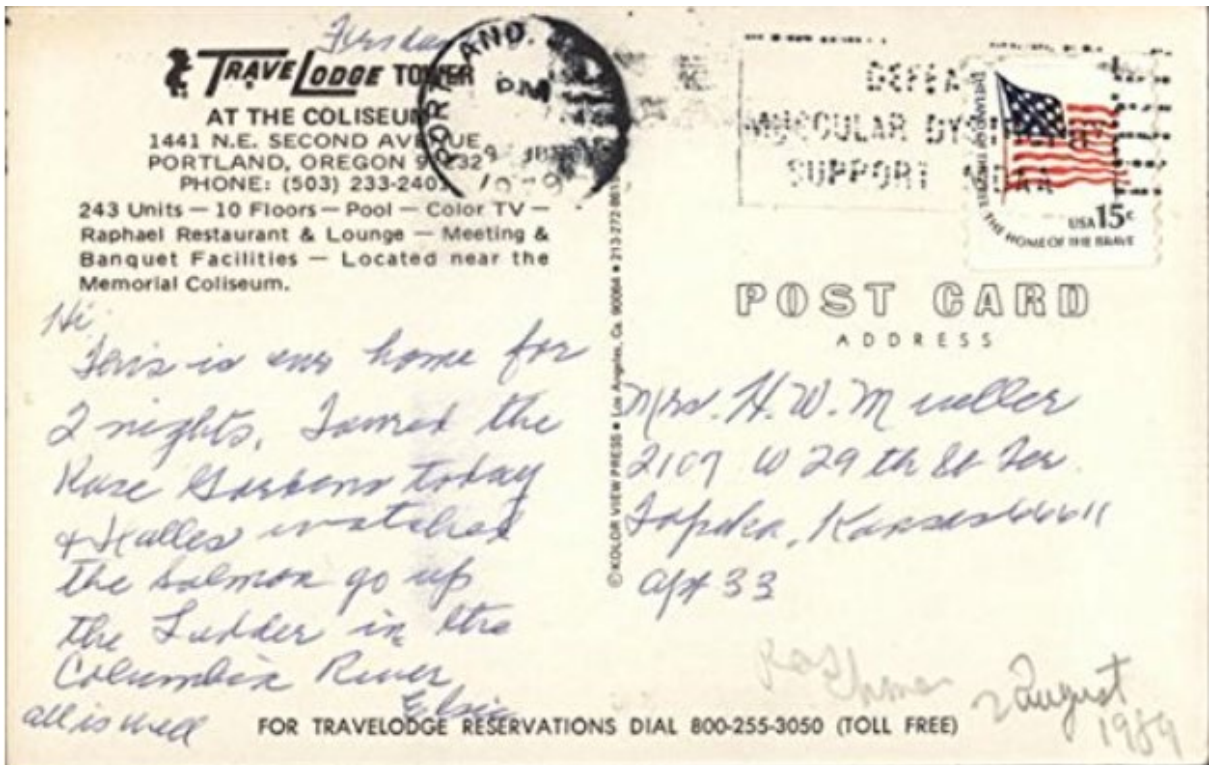 TRAVELODGE TOWER
AT THE COLISEUM
1441 N.E. SECOND AVENUE
PORTLAND, OREGON 97232
PHONE: (503) 233-2401
243 Units — 10 Floors — Pool — Color TV —
Raphael Restaurant & Lounge — Meeting &
Banquet Facilities — Located near the
Memorial Coliseum.
Hi
This is our home for
2 nights. Toured the
Rose Gardens today
& watched
the Salmon go up
the Ladder in the
Columbia River
Elsie
all is well
FOR TRAVELODGE RESERVATIONS DIAL 800-255-3050 (TOLL FREE)
© KOLOR VIEW PRESS • Los Angeles, Ca. 90064 • 213-272-861
PORTLAND,
PM
1979
DEFEAT
MUSCULAR DYSTROPHY
SUPPORT MDAA
THE LAND OF THE FREE THE HOME OF THE BRAVE
USA 15c
POST CARD
ADDRESS
Mrs. H. W. Mueller
2107 W 29th St Ter.
Topeka, Kansas 66611
apt 33
August
1989